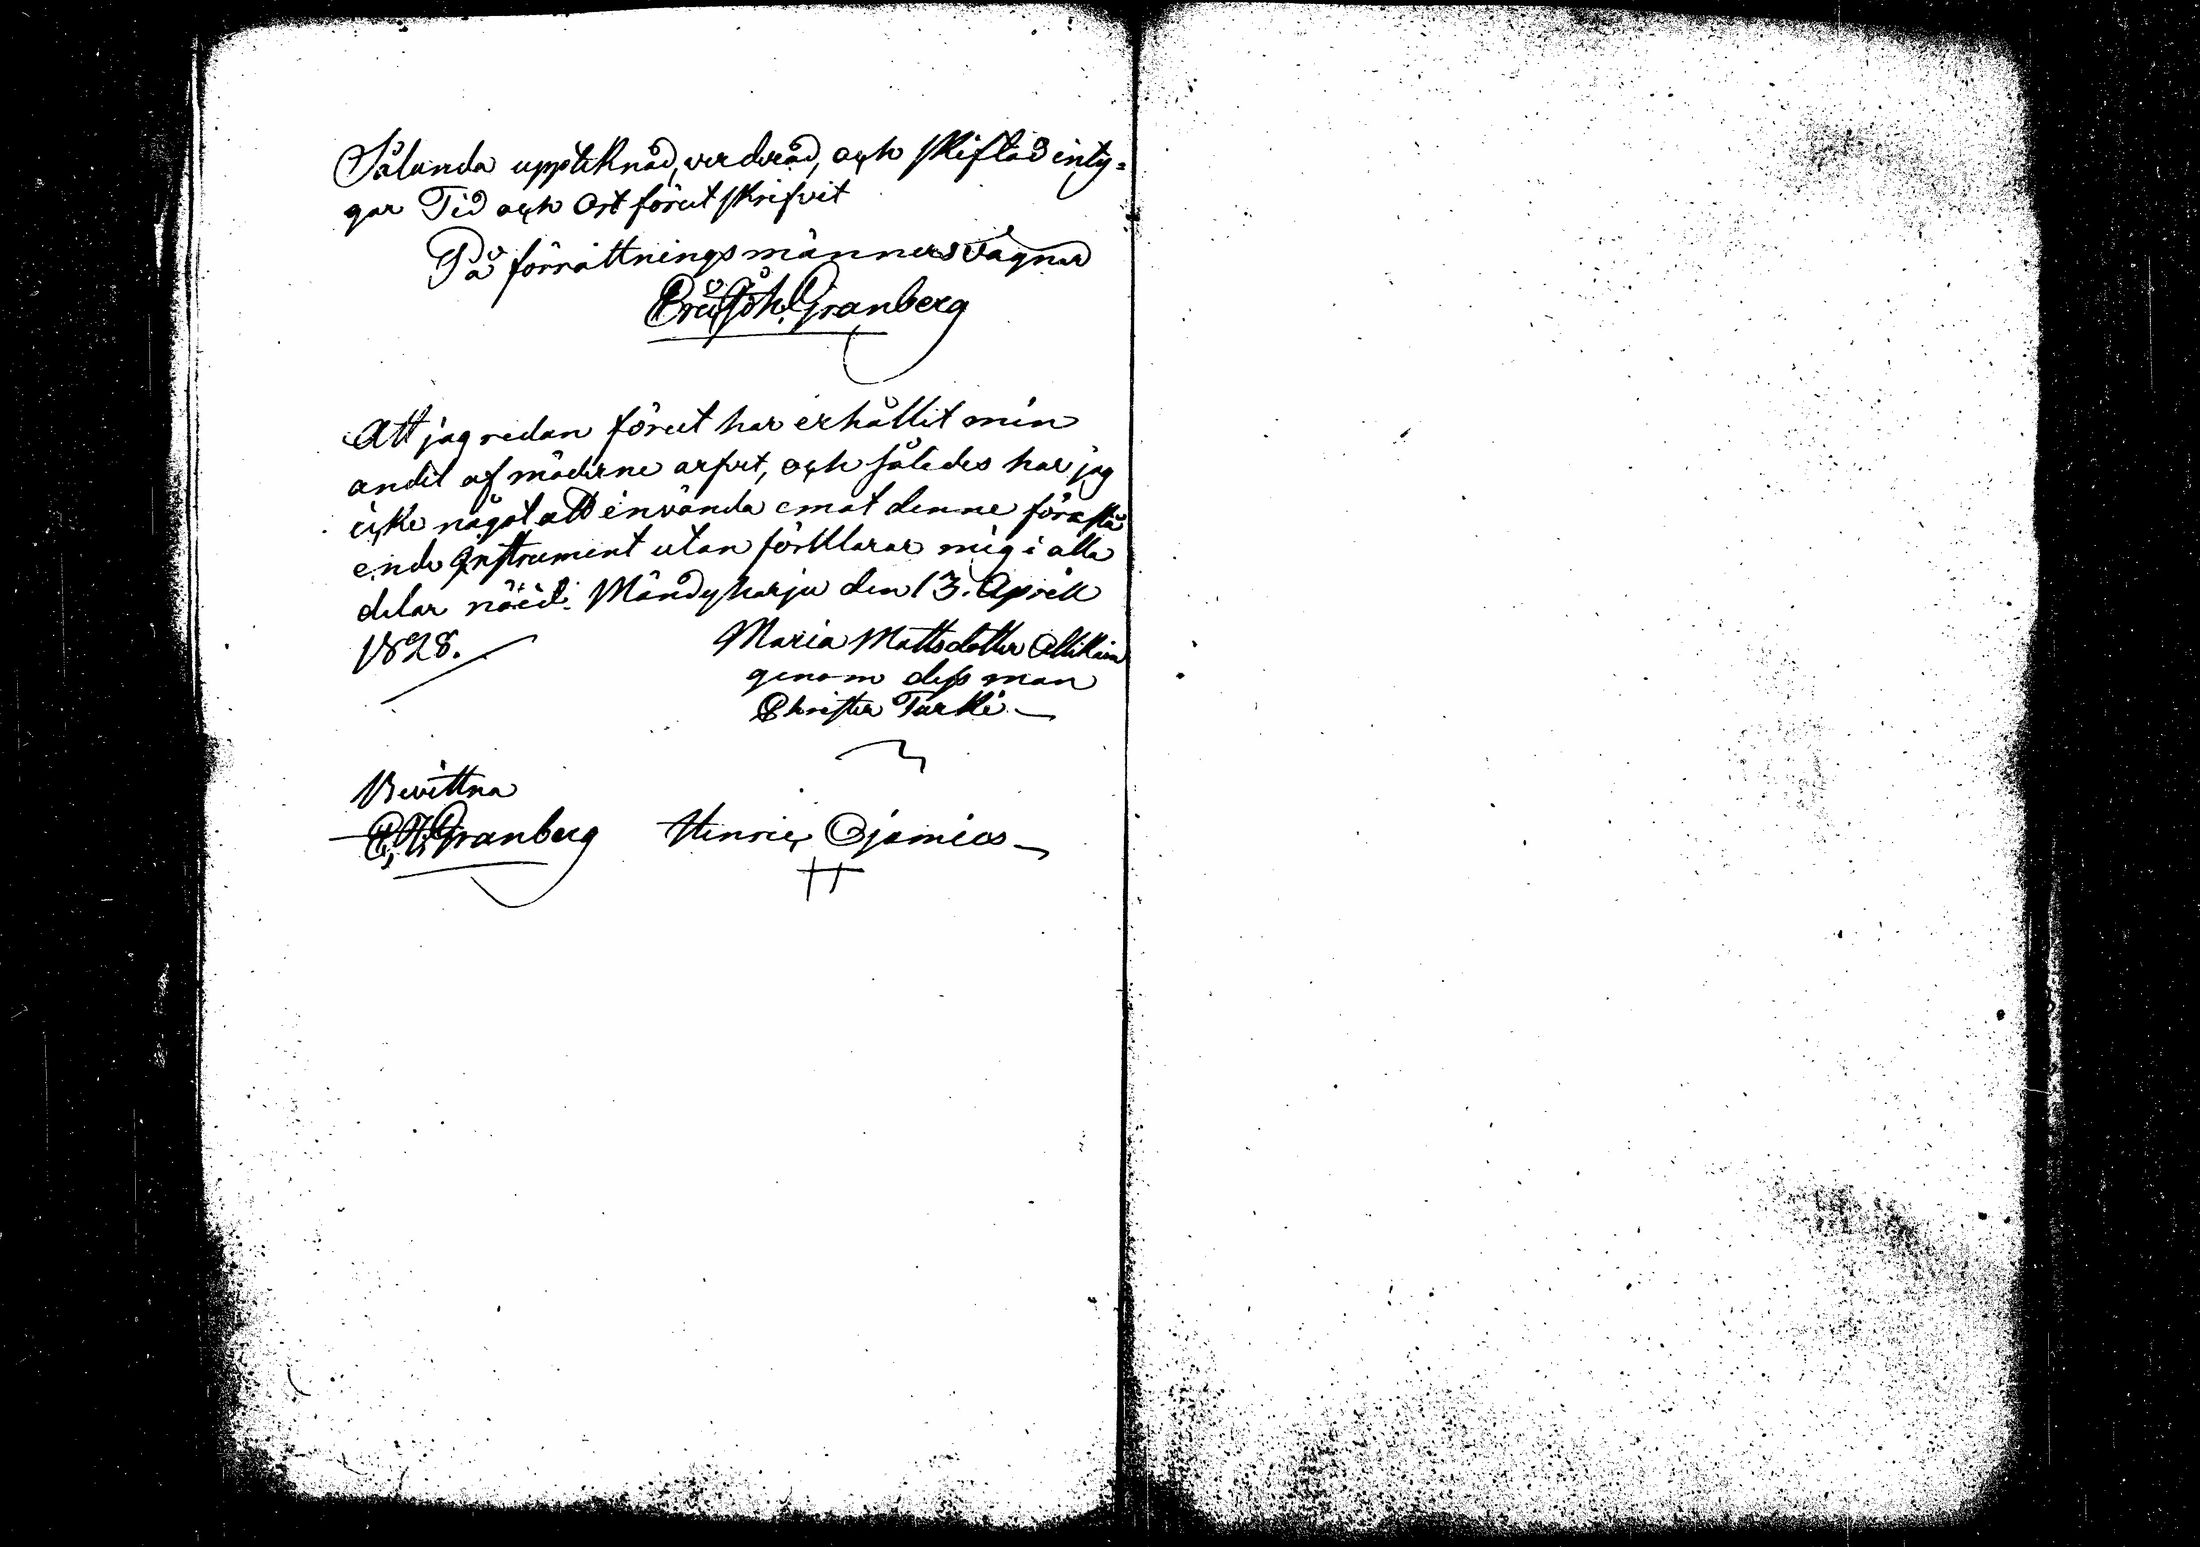 Sålunda uppteknad, verderad, och skiftad inty=
gar Tid och Ort förut skrifvit
På förrättningsmänners vägnar
Joh. Granberg
Att jag redan förut har erhållit min
andel af möderne arfvet, och således har jag
icke något att invända emot denne förestå
ende Instrument utan förklarar mig i alla
delar nöid. Mändyharju den 13. Aprill
1828.
Maria Mattsdotter
genom dess man
Christer Turki
Bevittna
E. J. Granberg Henric Ojamies